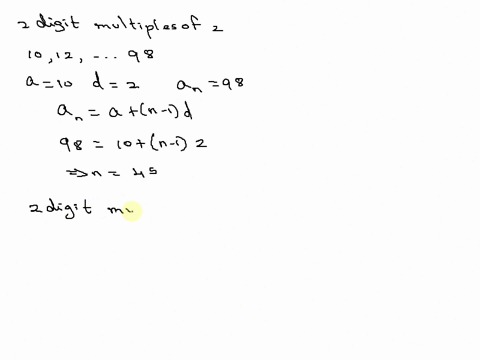 2 digit multiples of 2
10, 12, ... 98
a = 10 d = 2 aₙ = 98
aₙ = a + (n-1) d
98 = 10 + (n-1) 2
⇒ n = 45
2 digit m